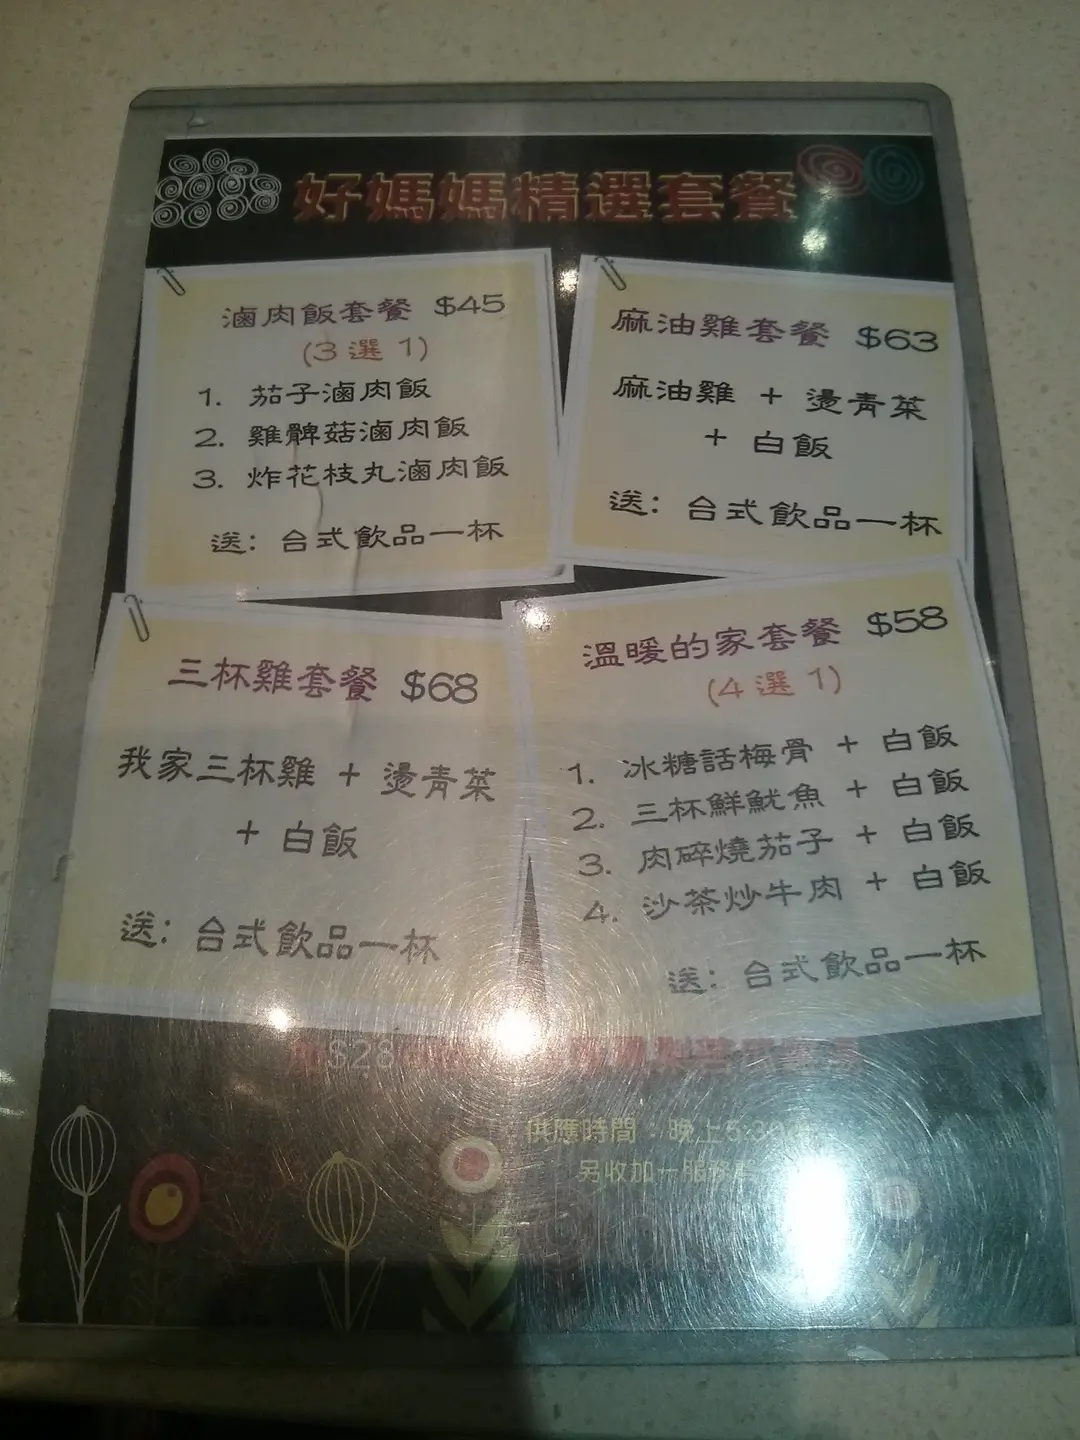 好媽媽精選套餐
滷肉飯套餐 $45
(3 選 1)
1. 茄子滷肉飯
2. 雞髀菇滷肉飯
3. 炸花枝丸滷肉飯
送: 台式飲品一杯
麻油雞套餐 $63
麻油雞 + 燙青菜
+ 白飯
送: 台式飲品一杯
三杯雞套餐 $68
我家三杯雞 + 燙青菜
+ 白飯
送: 台式飲品一杯
溫暖的家套餐 $58
(4 選 1)
1. 冰糖話梅骨 + 白飯
2. 三杯鮮魷魚 + 白飯
3. 肉碎燒茄子 + 白飯
4. 沙茶炒牛肉 + 白飯
送: 台式飲品一杯
$28
供應時間：晚上5:30
另收加一服務